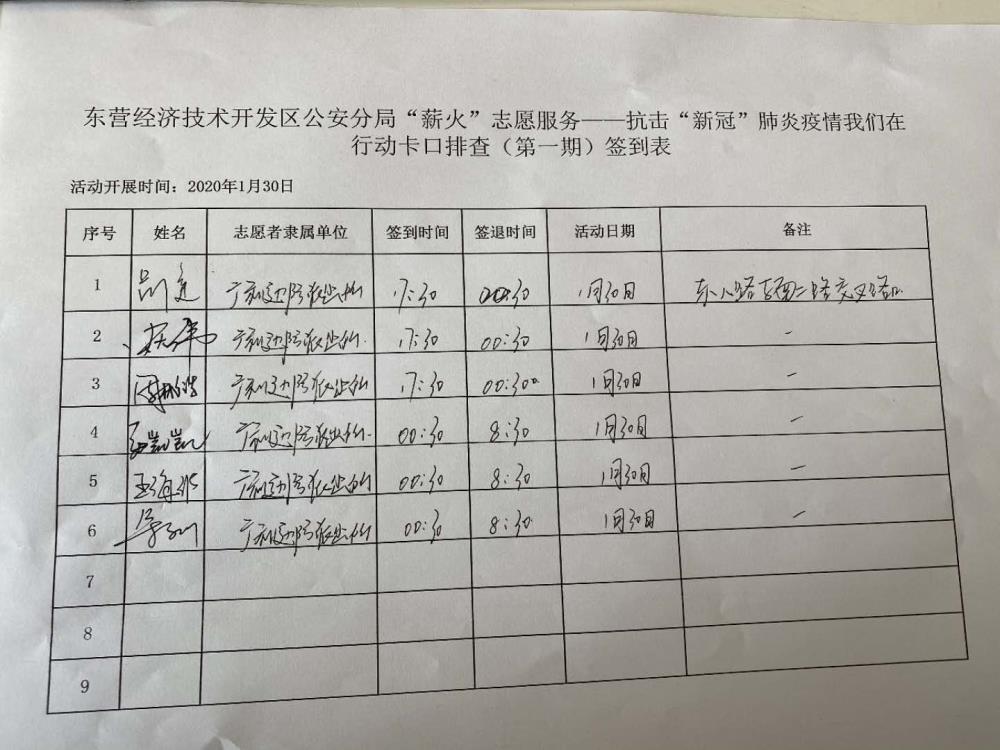 东营经济技术开发区公安分局“薪火”志愿服务——抗击“新冠”肺炎疫情我们在
行动卡口排查（第一期）签到表
活动开展时间：2020年1月30日
序号 姓名 志愿者隶属单位 签到时间 签退时间 活动日期 备注
1 广利边防派出所 17:30 00:30 1月30日
2 广利边防派出所 17:30 00:30 1月30日 –
3 广利边防派出所 17:30 00:30 1月30日 –
4 广利边防派出所 00:30 8:30 1月30日 –
5 王海 广利边防派出所 00:30 8:30 1月30日 –
6 广利边防派出所 00:30 8:30 1月30日 –
7
8
9